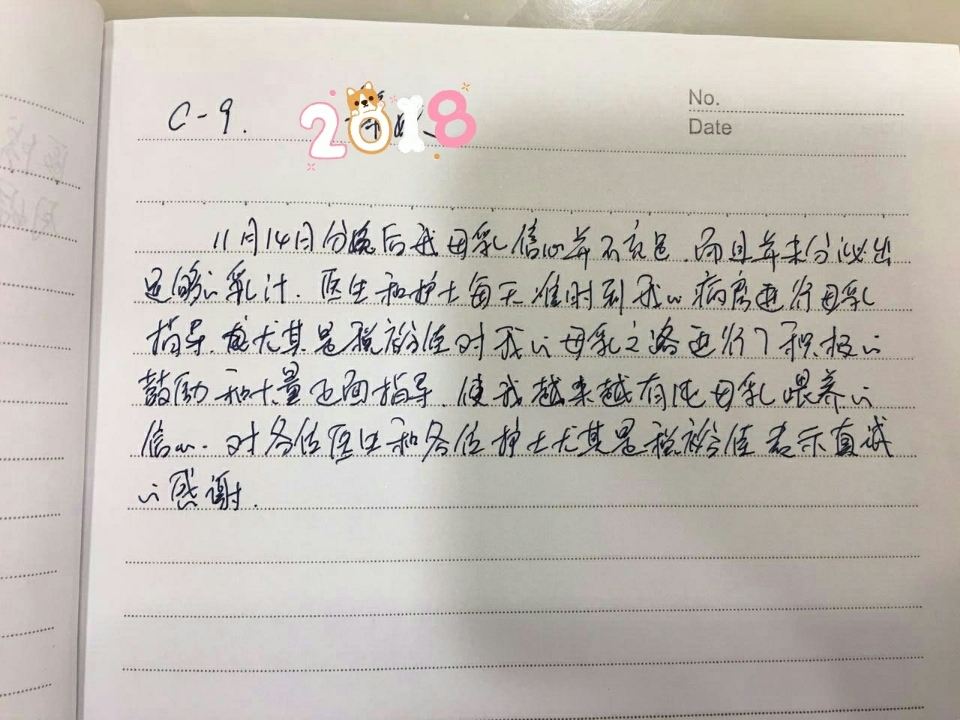 No.
C-9.
2018
Date
11月14日分娩后我母乳信心并不充足.而且并未分泌出
足够的乳汁.医生和护士每天准时到我的病房进行母乳
指导.尤其是程裕佳对我的母乳之路进行了积极的
鼓励和大量正面指导.使我越来越有纯母乳喂养的
信心.对各位医生和各位护士尤其是程裕佳表示真诚
的感谢.